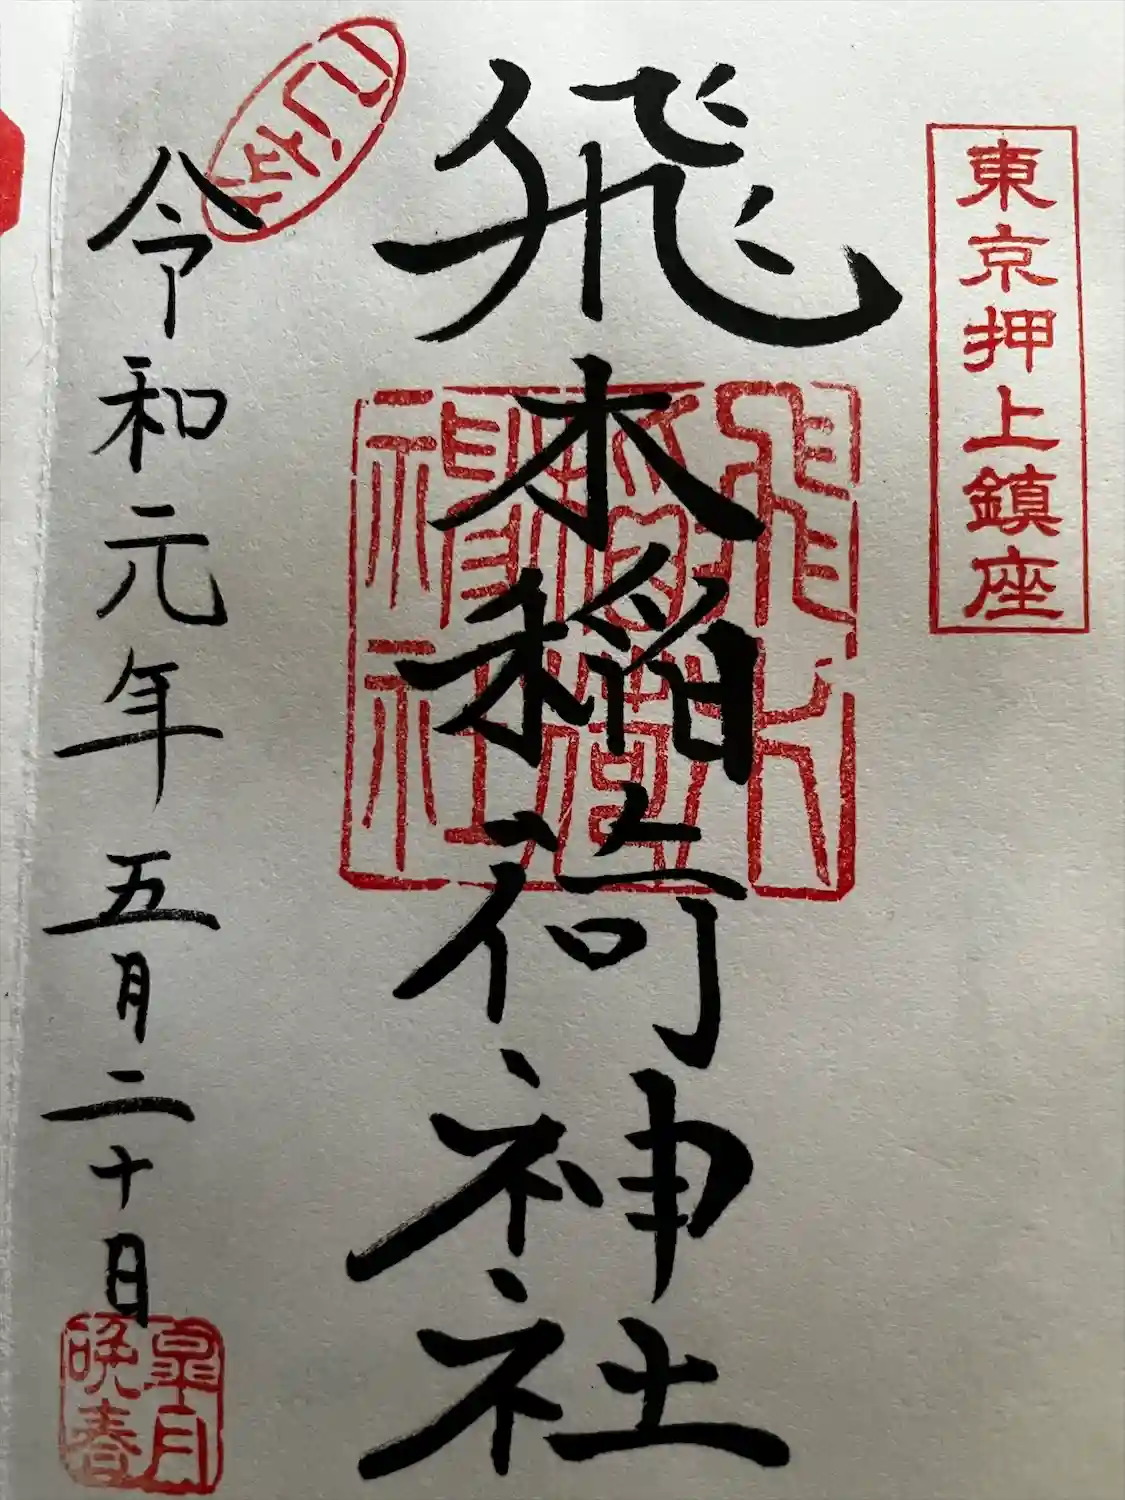 東京押上鎮座
飛木稲荷神社
飛木稲荷神社
令和元年五月二十日
皐月
晩春